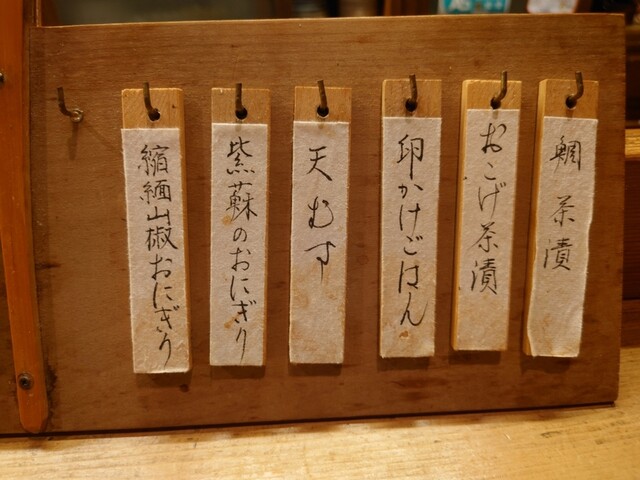 鯛茶漬
おこげ茶漬
卵かけごはん
天むす
紫蘇のおにぎり
縮緬山椒おにぎり